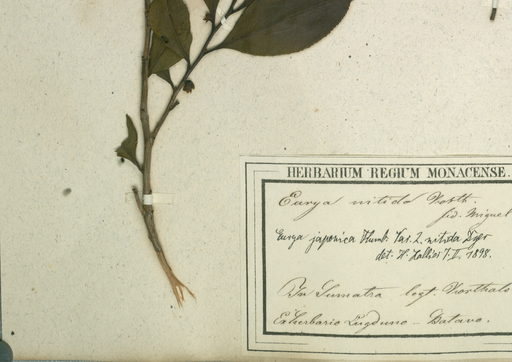 HERBARIUM REGIUM MONACENSE.
Eurya nitida Korth.
fid. Miquel
Eurya japonica Thunb. Var. 2. nitida Dyer
det. H. Hallier 7. II. 1898.
In Sumatra legt. Korthals
Ex herbario Lugduno-Batavo.